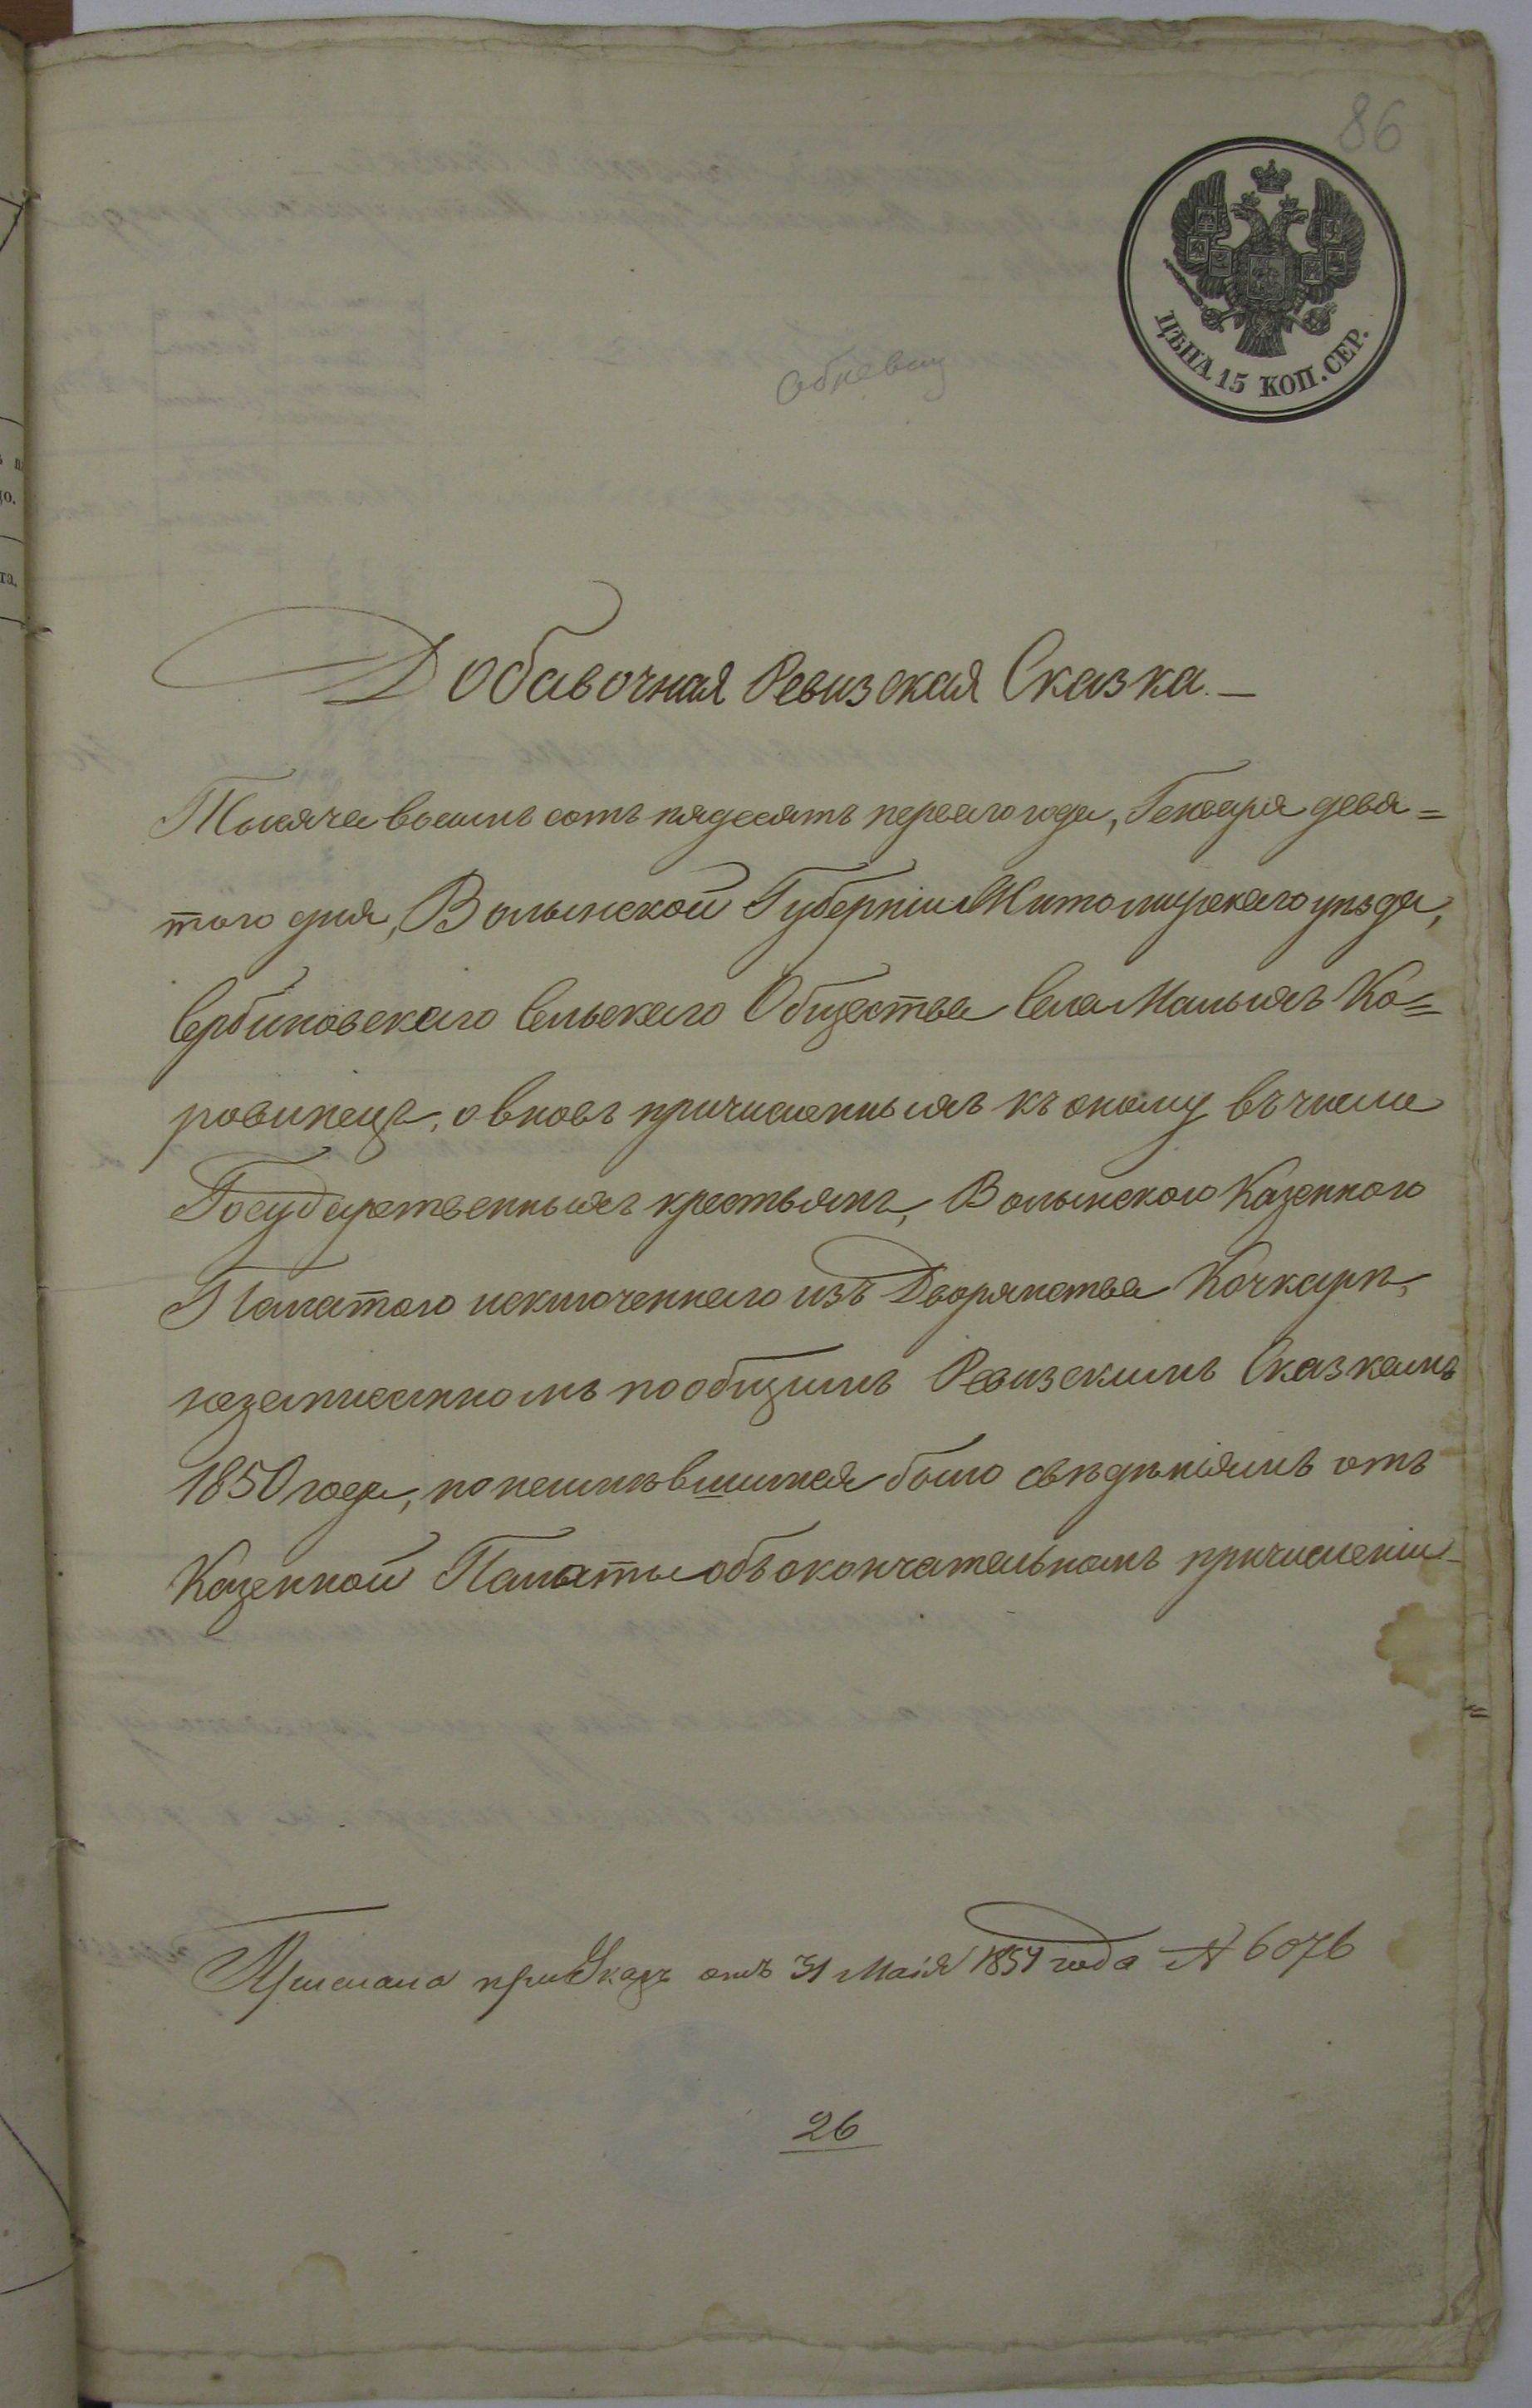 86
ЦѢНА 15 КОП. СЕР.
Добавочная Ревизская Сказка.—
Тысяча восемь сотъ пядесятъ первого года, Генваря девя=
того дня, Волынской Губерніи Житомирскаго уѣзда,
Сербиновскаго Сельскаго Общества Села Малыхъ Ко=
ровинецъ, о вновь причисленныхъ къ оному въ числе
Государственныхъ крестьянъ, Волынскою Казенною
Палатою исключеннаго изъ Дворянства Кочкарѣ,
незаписанномъ по общимъ Ревизскимъ Сказкамъ
1850 года, по неимѣвшимся было свѣдѣніямъ отъ
Казенной Палаты объ окончательномъ причисленіи
Прислана при Указѣ отъ 31 Маія 1851 года № 6076
26